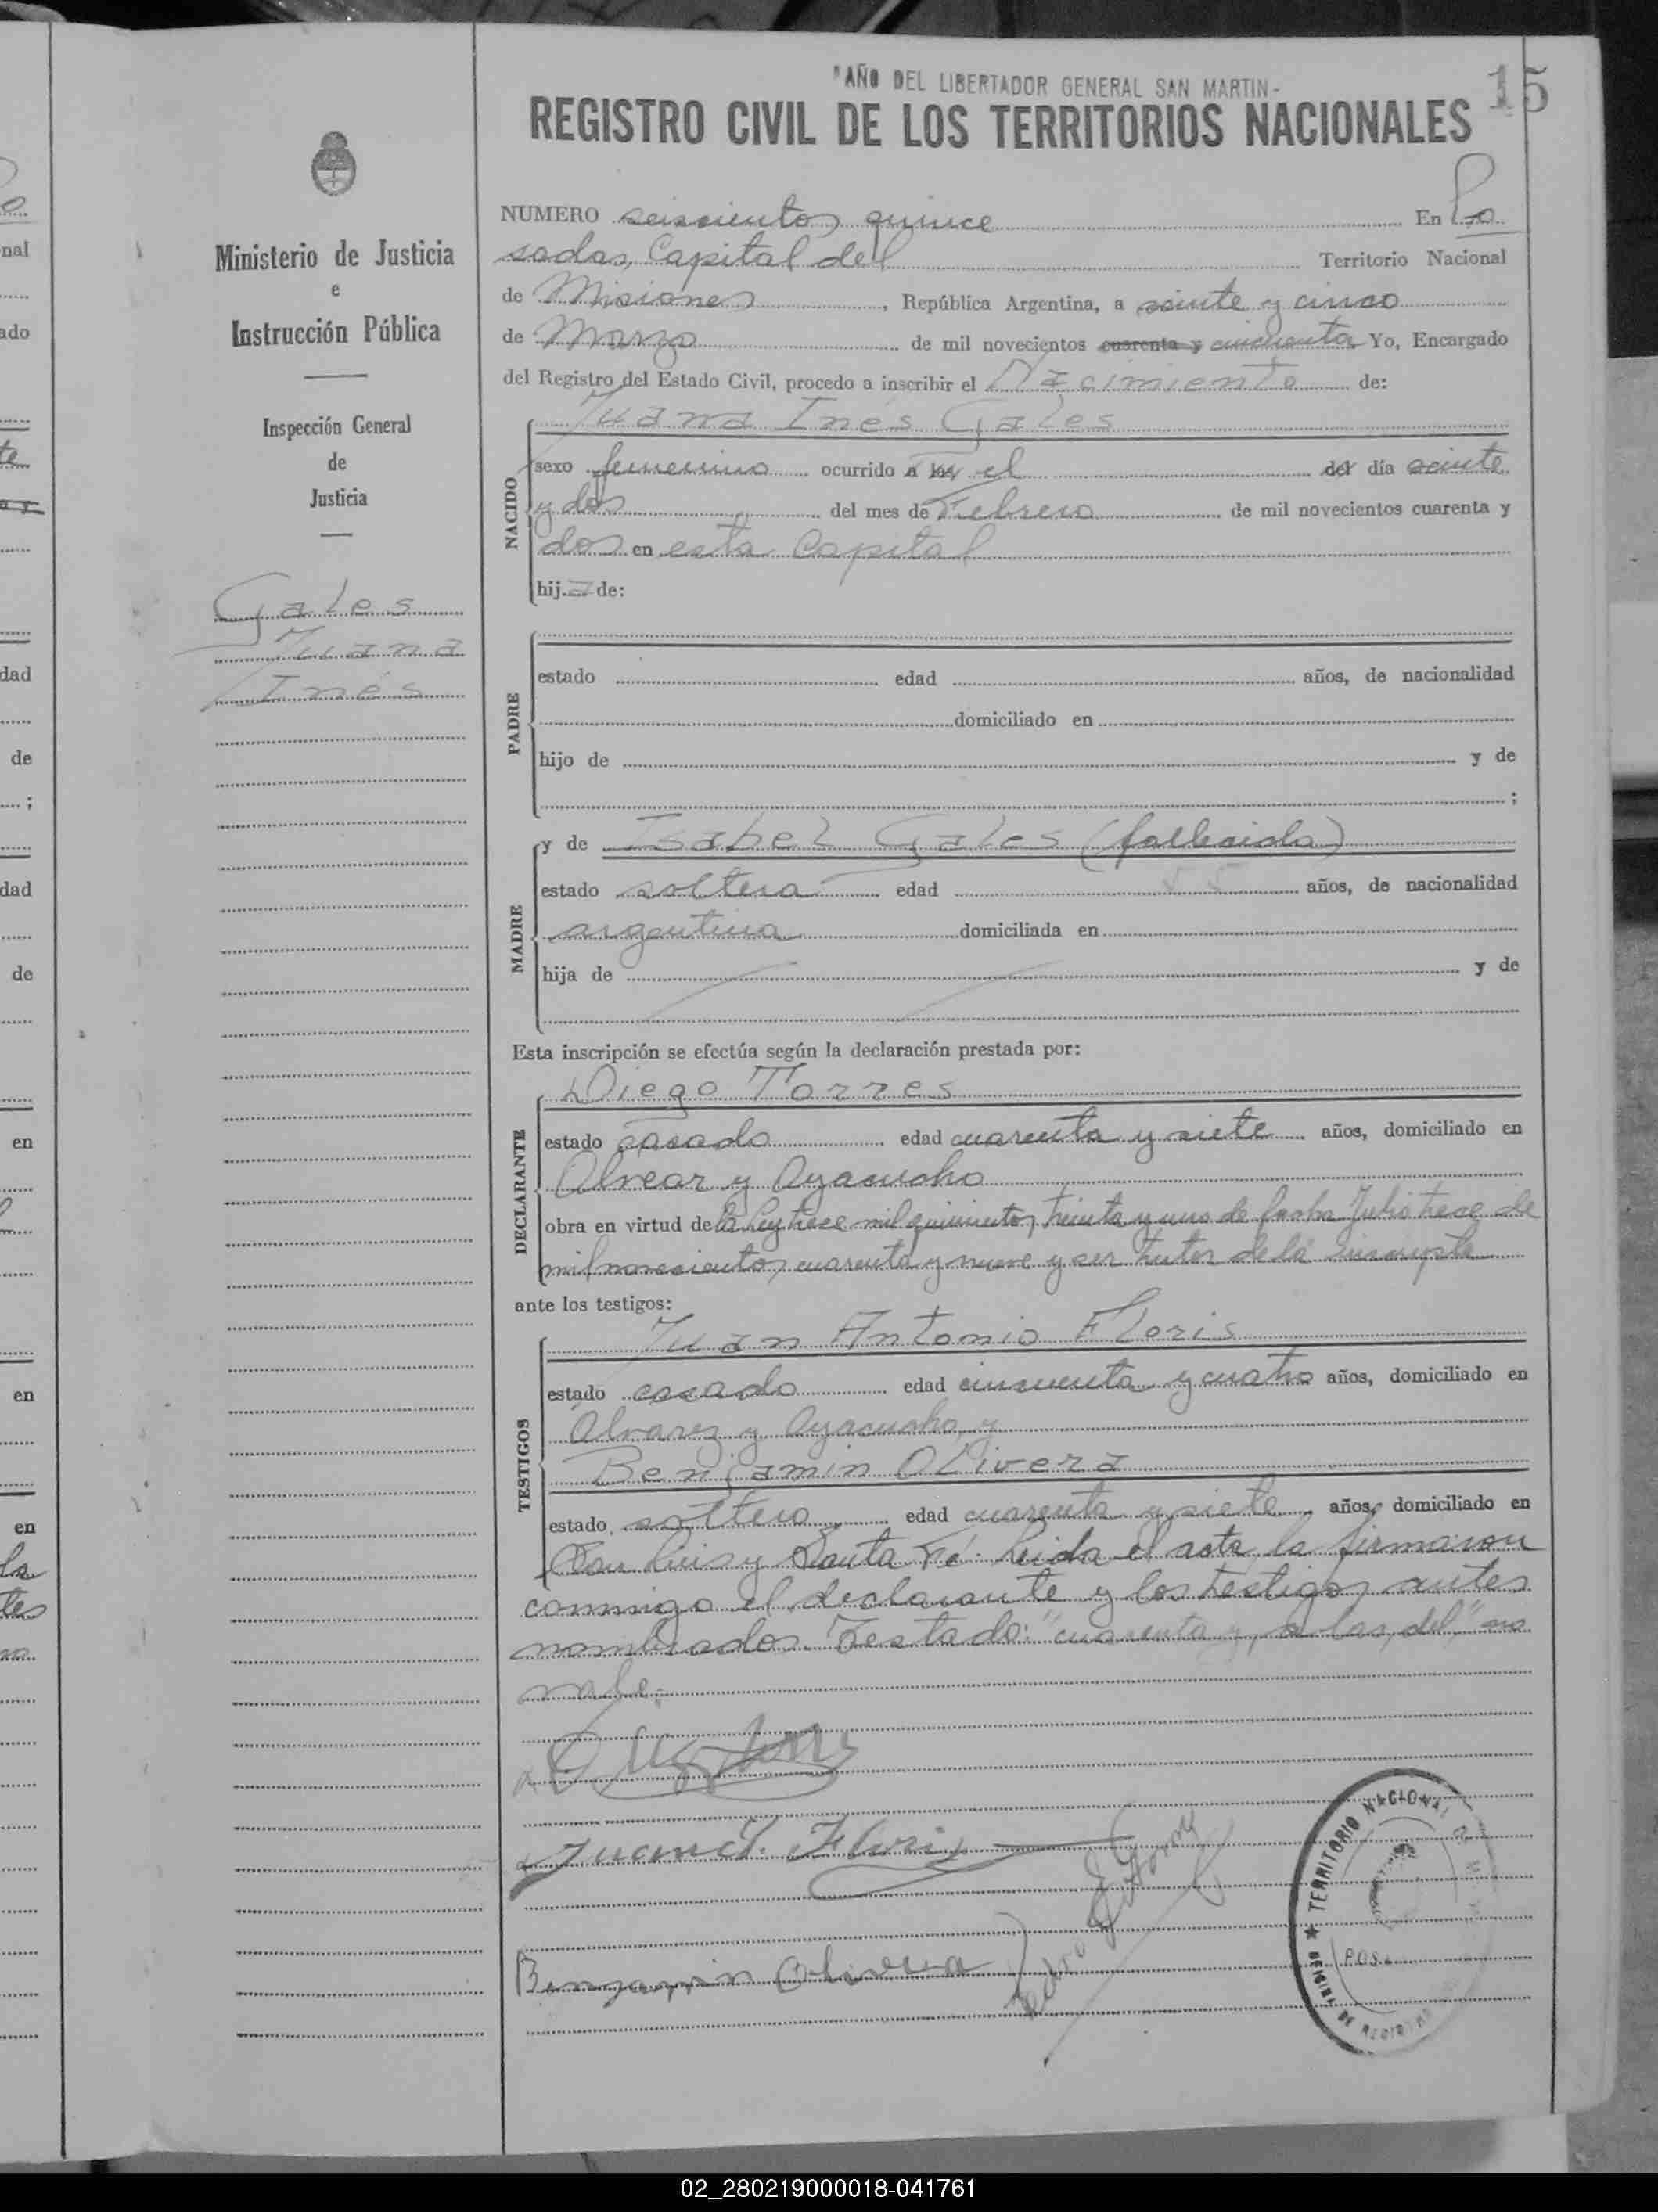 "AÑO DEL LIBERTADOR GENERAL SAN MARTIN-
15
REGISTRO CIVIL DE LOS TERRITORIOS NACIONALES
Ministerio de Justicia
e
Instrucción Pública
Inspección General
de
Justicia
Gales
Juana
Inés
NUMERO seiscientos quince En Po
sadas, Capital del Territorio Nacional
de Misiones, República Argentina, a veinte y cinco
de Marzo de mil novecientos cuarenta y cincuenta Yo, Encargado
del Registro del Estado Civil, procedo a inscribir el Nacimiento de:
NACIDO
Juana Inés Gales
sexo femenino ocurrido a las el del día veinte
y dos del mes de Febrero de mil novecientos cuarenta y
dos en esta Capital
hija de:
PADRE
estado edad años, de nacionalidad
domiciliado en
hijo de y de
;
MADRE
y de Isabel Gales (fallecida)
estado soltera edad años, de nacionalidad
argentina domiciliada en
hija de y de
Esta inscripción se efectúa según la declaración prestada por:
DECLARANTE
Diego Torres
estado casado edad cuarenta y siete años, domiciliado en
Alvear y Ayacucho
obra en virtud de la Ley trece mil quinientos treinta y uno de fecha Julio trece de
mil novecientos cuarenta y nueve y ser tutor de la inscripta
ante los testigos:
TESTIGOS
Juan Antonio Floris
estado casado edad cincuenta y cuatro años, domiciliado en
Alvarez y Ayacucho, y
Benjamin Olivera
estado soltero edad cuarenta y siete años, domiciliado en
San Luis y Santa Fé. Leida el acta la firmaron
conmigo el declarante y los testigos antes
nombrados. Testado: "cuarenta y, a las, del," no
vale.
Juan A. Floris
Benjamin Olivera
TERRITORIO NACIONAL
POSA
02_280219000018-041761